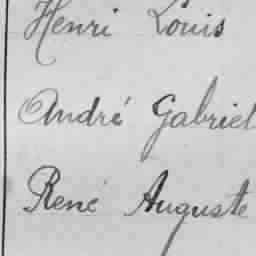 Henri Louis
André Gabriel
René Auguste